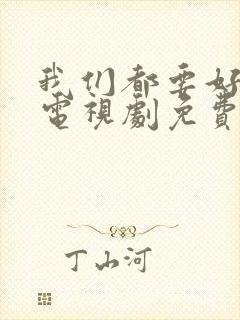 我们都要好
電視劇免費
丁山河